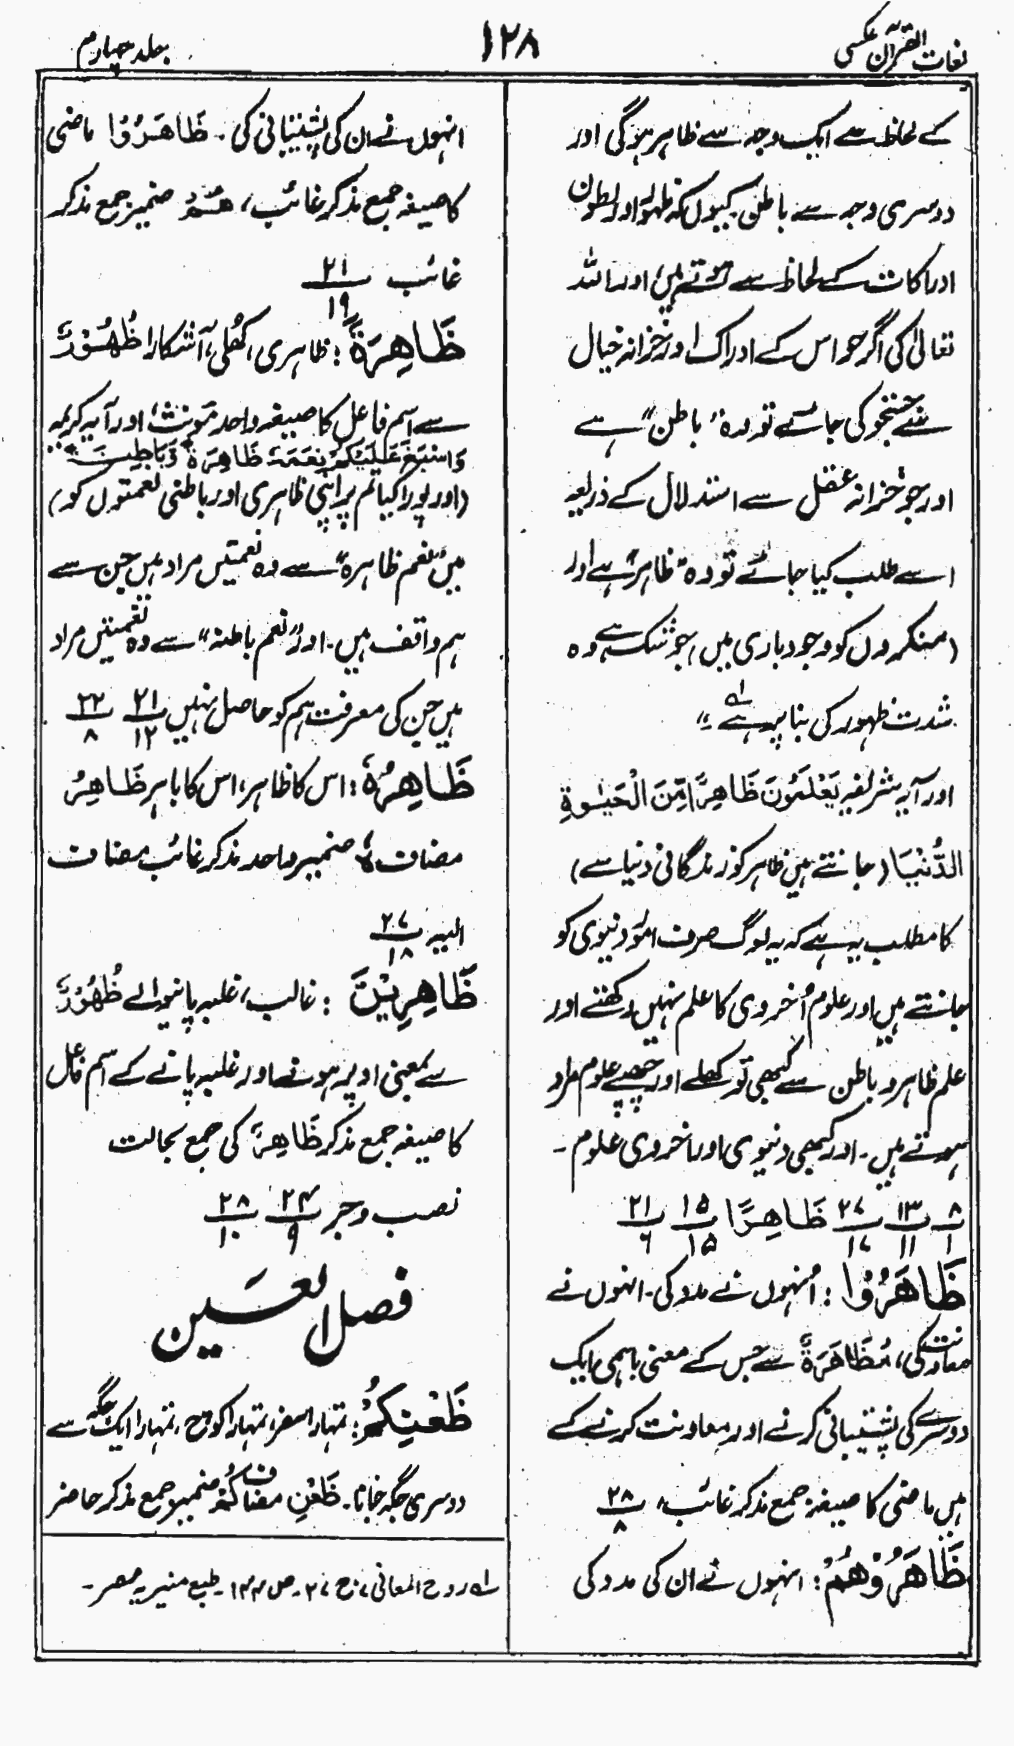 لغات القرآن عکسی
۱۲۸
جلد چہارم
کے لحاظ سے ایک وجہ سے ظاہر ہوگی اور
دوسری وجہ سے باطن کیونکہ ظہور اور بطون
ادراکات کے لحاظ سے ہوتے ہیں، اور اللہ
تعالیٰ کی اگر حواس کے ادراک اور خزانہ خیال
سے جستجو کی جائے تو وہ "باطن" ہے
اور جو خزانہ عقل سے استدلال کے ذریعہ
اسے طلب کیا جائے تو وہ "ظاہر" ہے اور
(منکروں کو وجود باری میں) جو شک ہے وہ
شدت ظہور کی بنا پر ہے لہ"
اور آیہ شریفہ يَعْلَمُوْنَ ظَاهِرًا مِّنَ الْحَيٰوةِ
الدُّنْيَا (جانتے ہیں ظاہر کو زندگانی دنیا سے)
کا مطلب یہ ہے کہ یہ لوگ صرف امور دنیوی کو
جانتے ہیں اور علوم اُخروی کا علم نہیں رکھتے اور
علم ظاہر و باطن سے کبھی تو کھلے اور چھپے علوم مراد
ہوتے ہیں۔ اور کبھی دنیوی اور اخروی علوم۔
۸/۱ ۱۳/۱۱ ۲۷/۱۷ ظَاهِرًا ۱۵/۱۵ ۲۱/۶
ظَاهَرُوْا: اُنہوں نے مدد کی۔ انہوں نے
معاونت کی، مُظَاهَرَةٌ سے جس کے معنی باہمی ایک
دوسرے کی پشتیبانی کرنے اور معاونت کرنے کے
ہیں ماضی کا صیغہ جمع مذکر غائب، ۲۸/۸
ظَاهَرُوْهُمْ: انہوں نے ان کی مدد کی
انہوں نے ان کی پشتیبانی کی۔ ظَاهَرُوْا ماضی
کا صیغہ جمع مذکر غائب، هُمْ ضمیر جمع مذکر
غائب ۲۱/۱۹
ظَاهِرَةً: ظاہری، کھلی، آشکارا ظُهُوْرٌ
سے اسم فاعل کا صیغہ واحد مؤنث، اور آیہ کریمہ
وَاَسْبَغَ عَلَيْكُمْ نِعَمَهٗ ظَاهِرَةً وَّبَاطِنَةً
(اور پورا کیا تم پر اپنی ظاہری اور باطنی نعمتوں کو)
میں "نعم ظاہرہ" سے وہ نعمتیں مراد ہیں جن سے
ہم واقف ہیں۔ اور "نعم باطنہ" سے وہ نعمتیں مراد
ہیں جن کی معرفت ہم کو حاصل نہیں ۲۱/۱۲ ۲۲/۸
ظَاهِرُهٗ: اس کا ظاہر، اس کا باہر ظَاهِرُ
مضاف هٗ ضمیر واحد مذکر غائب مضاف
الیہ ۲۷/۱۸
ظَاهِرِيْنَ: غالب، غلبہ پانیوالے ظُهُوْرٌ
سے بمعنی اوپر ہونے اور غلبہ پانے کے اسم فاعل
کا صیغہ جمع مذکر ظَاهِرٌ کی جمع بحالت
نصب و جر ۲۴/۹ ۲۸/۱۰
فصل العین
ظَعْنِكُمْ: تمہارا سفر، تمہارا کوچ، تمہارا ایک جگہ سے
دوسری جگہ جانا۔ ظَعْنِ مضاف كُمْ ضمیر جمع مذکر حاضر
لہ روح المعانی، ج ۲۷۔ ص ۱۴۴۔ طبع منیریہ مصر۔